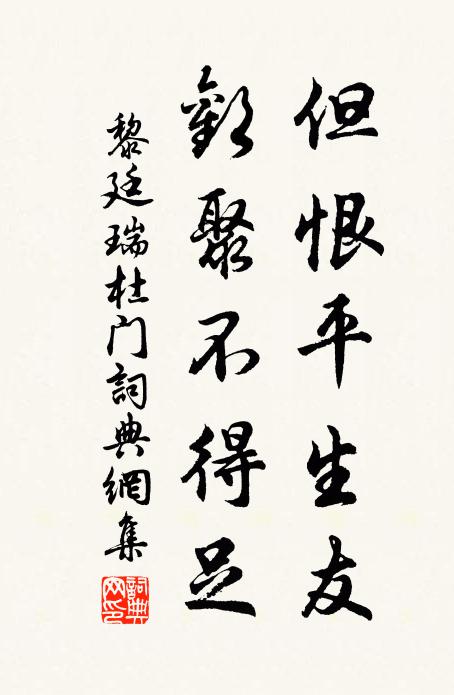 但恨平生友
歡聚不得足
黎廷瑞杜门詞典網集
詞典網印